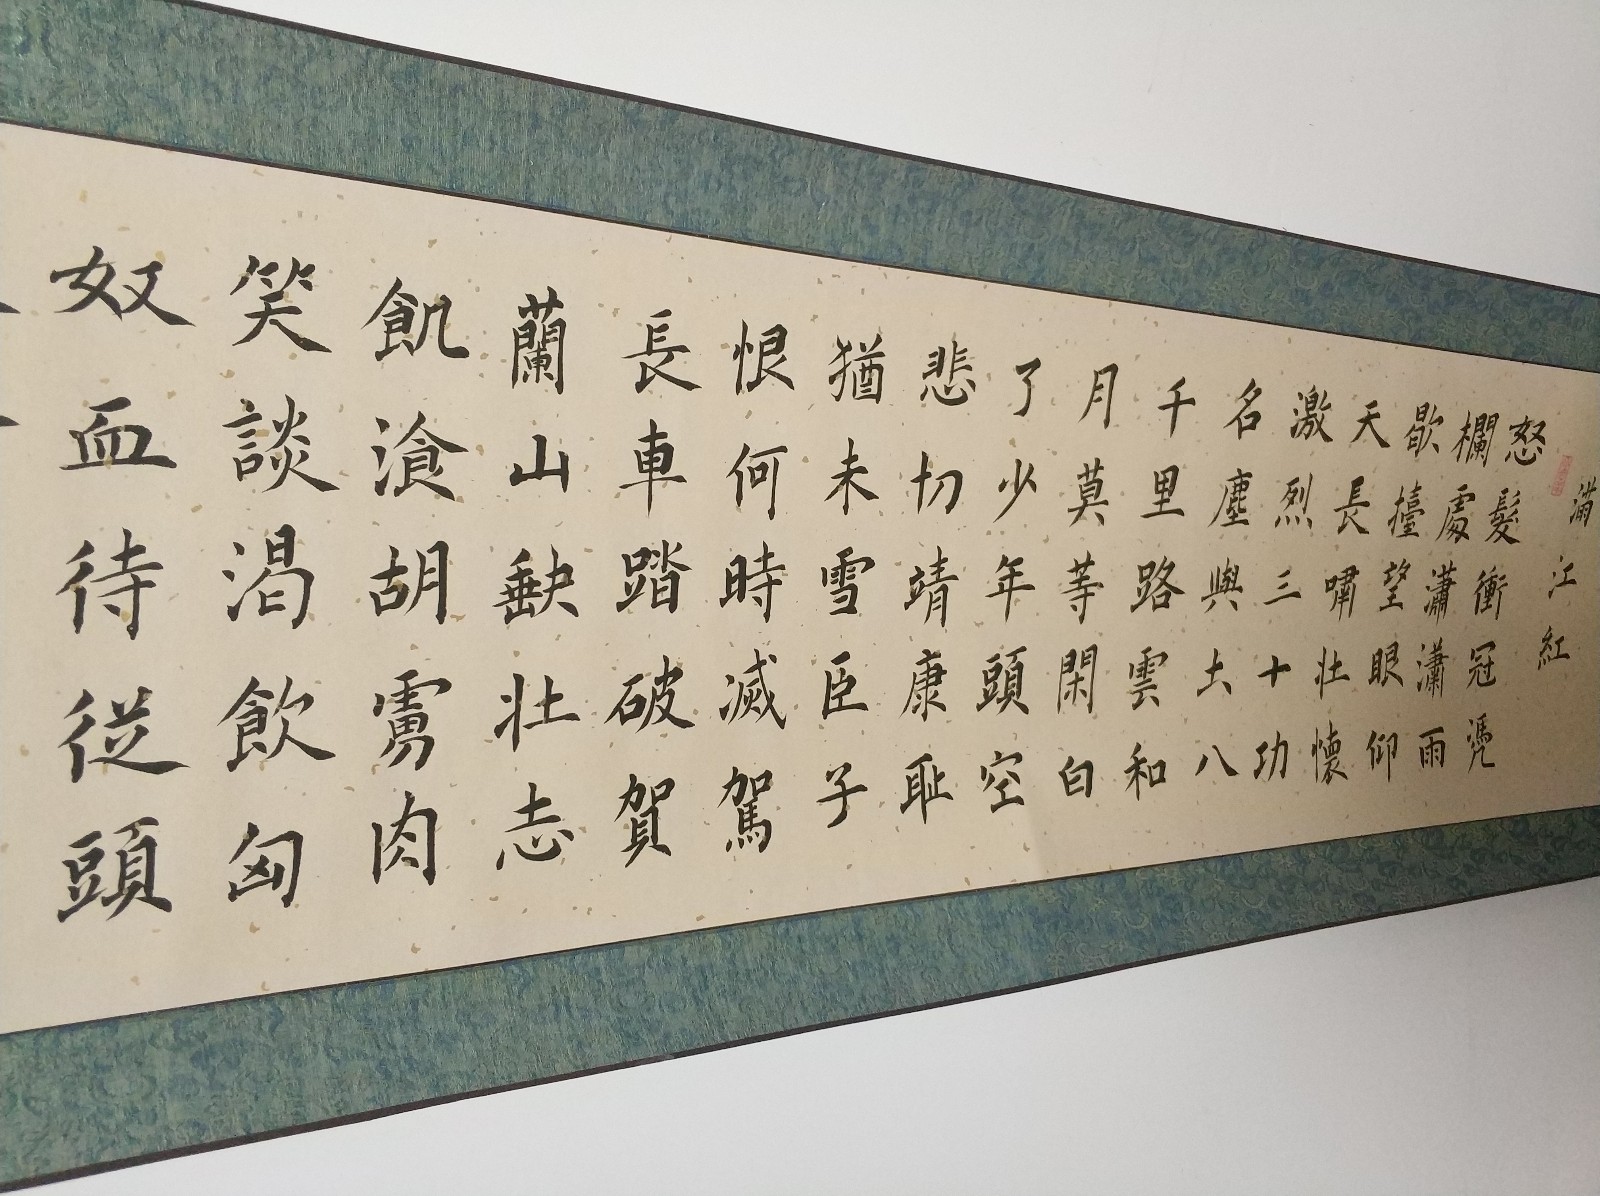 滿江紅
怒髮衝冠凴
欄處瀟瀟雨
歇擡望眼仰
天長嘯壯懷
激烈三十功
名塵與土八
千里路雲和
月莫等閑白
了少年頭空
悲切靖康耻
猶未雪臣子
恨何時滅駕
長車踏破賀
蘭山缺壯志
飢湌胡虜肉
笑談渴飲匈
奴血待従頭